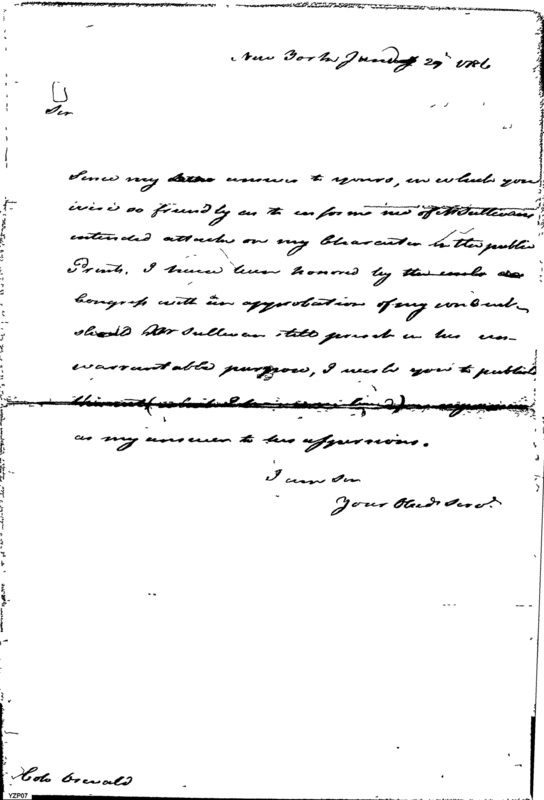 New York June 29 1786
Sir
Since my answer to yours, in which you
were so friendly as to inform me of Mr Sullivans
intended attack on my Character in the public
Prints. I have been honored by the
Congress with an approbation of my conduct
should Mr Sullivan still persist in his un-
warrantable purpose, I wish you to publish
as my answer to his aspersions.
I am Sir
Your Obedt Servt.
Colo Oswald
YZP07